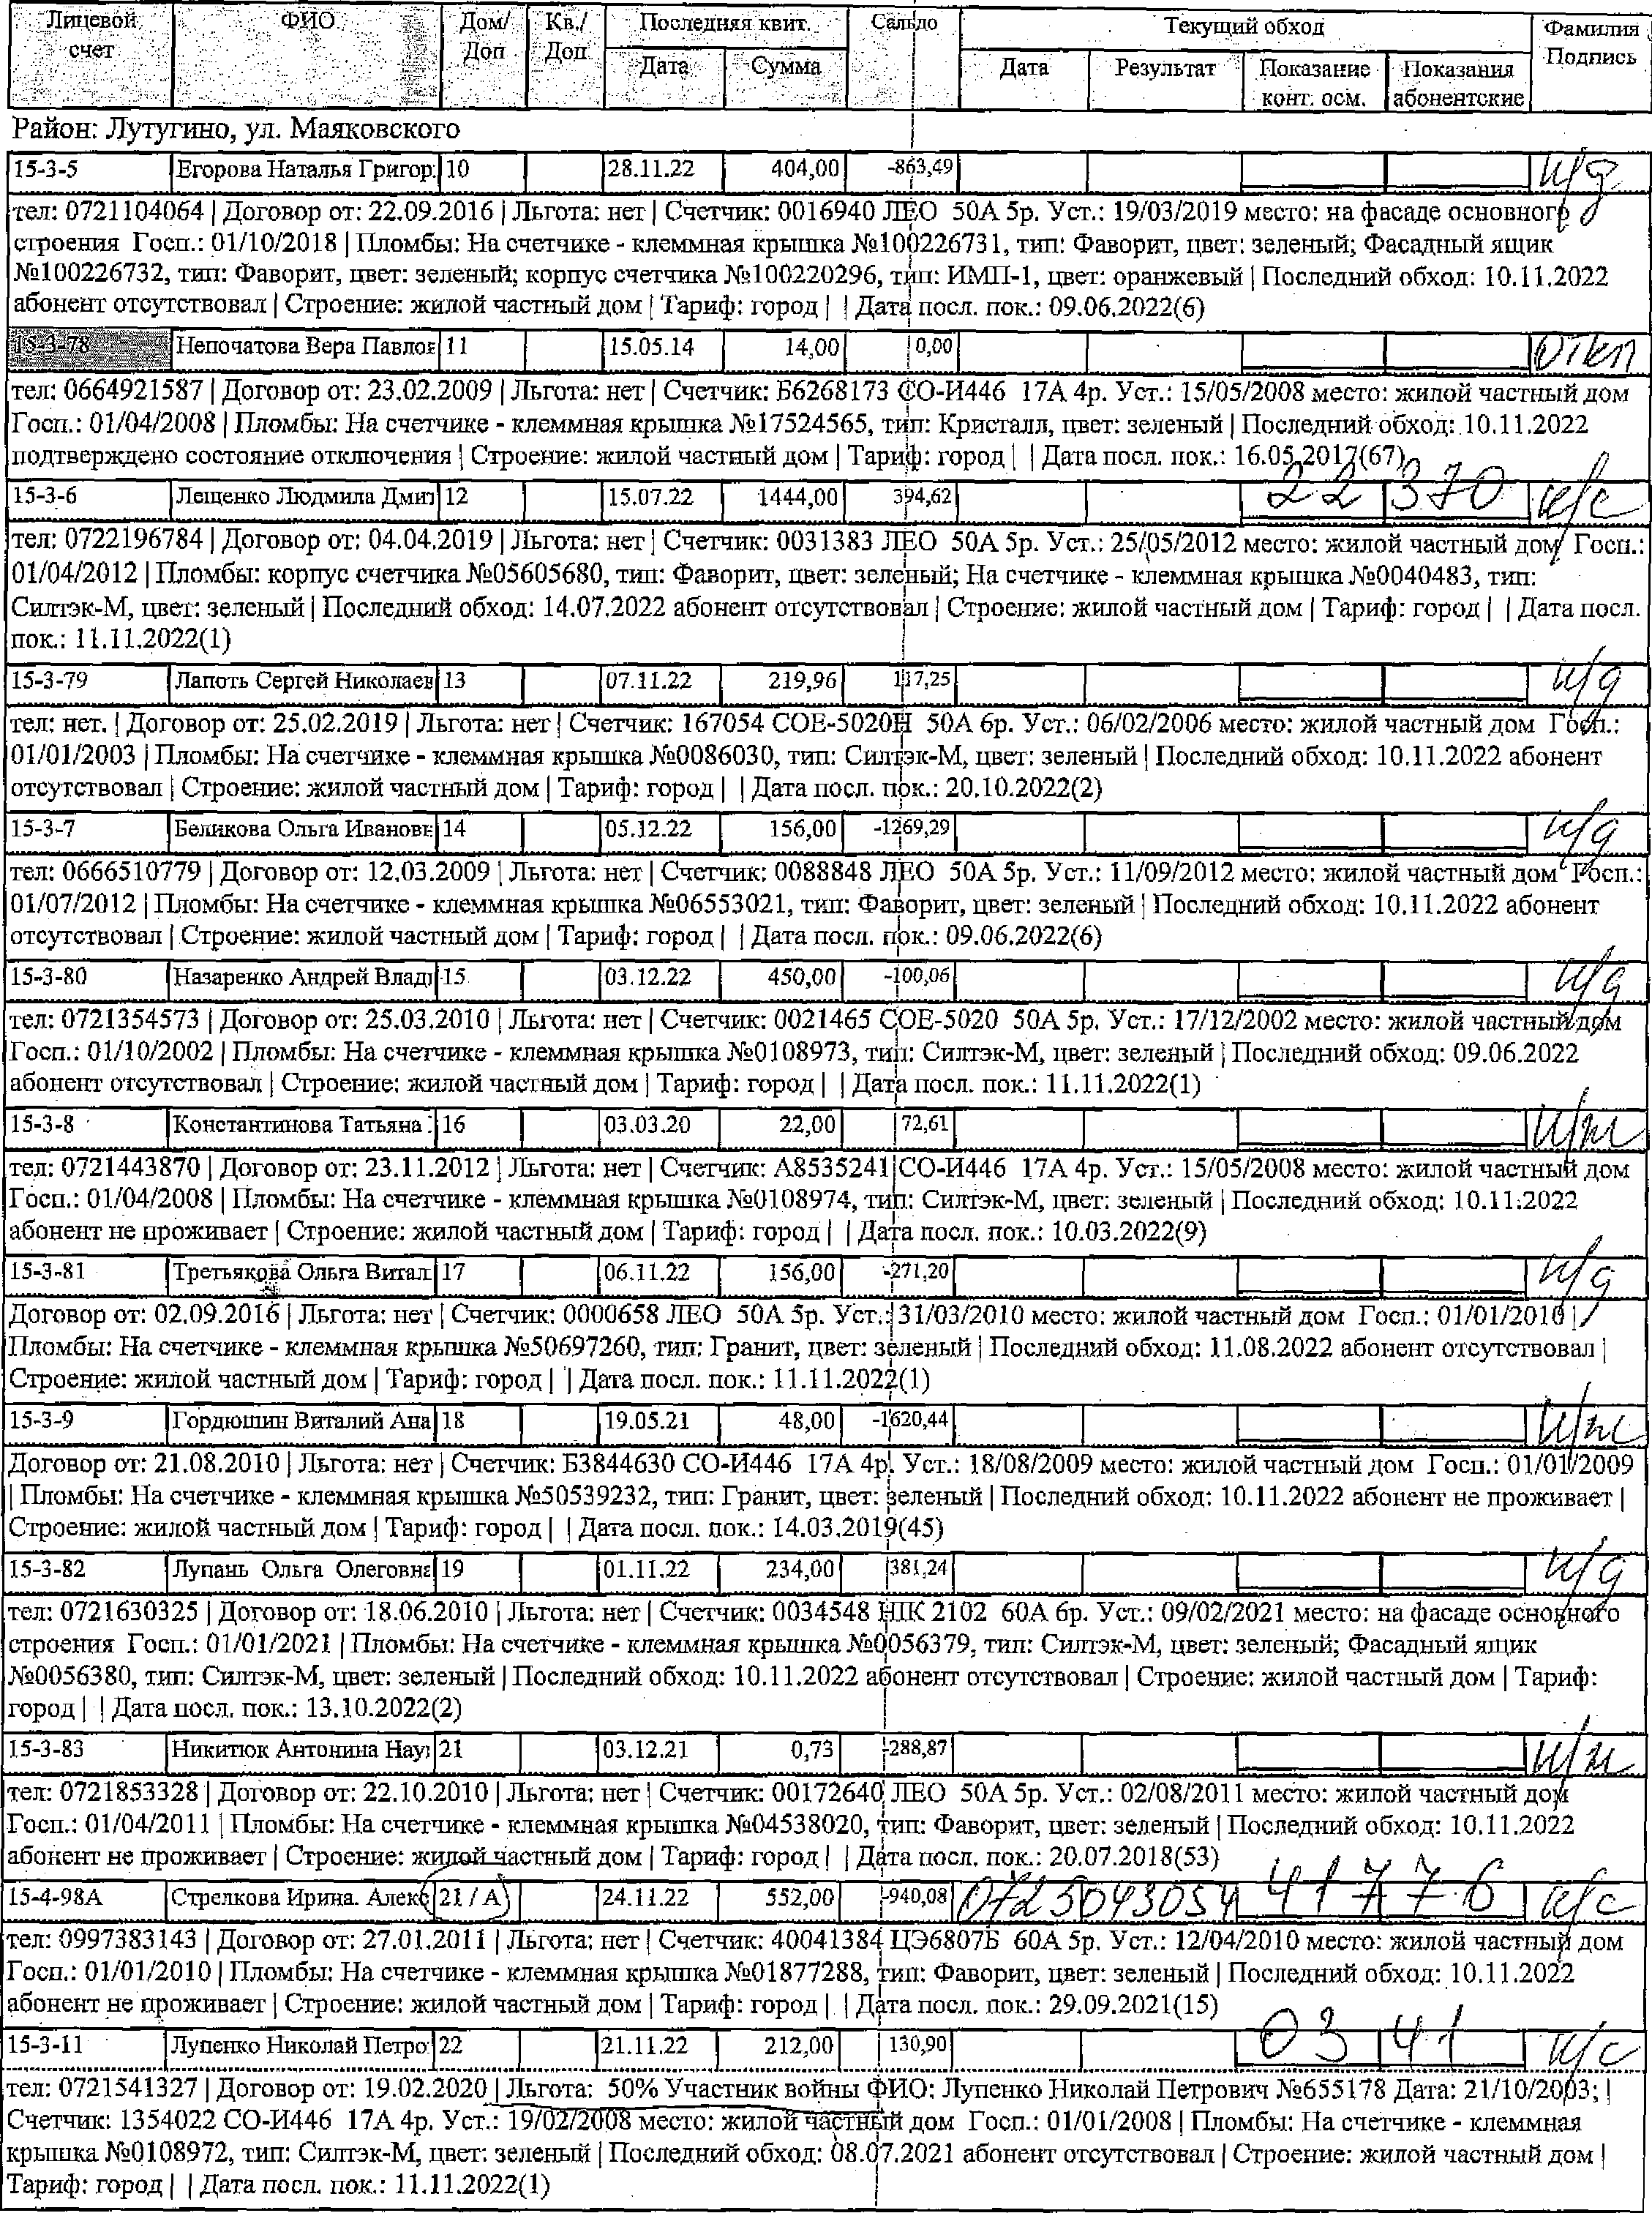 Лицевой счет | ФИО | Дом/Доп | Кв./Доп | Последняя квит. Дата | Сумма | Сальдо | Текущий обход Дата | Результат | Показание конт. осм. | Показания абонентские | Фамилия Подпись
Район: Лутугино, ул. Маяковского
15-3-5 Егорова Наталья Григор 10 28.11.22 404,00 -863,49 н/д
тел: 0721104064 | Договор от: 22.09.2016 | Льгота: нет | Счетчик: 0016940 ЛЕО 50А 5р. Уст.: 19/03/2019 место: на фасаде основного
строения Госп.: 01/10/2018 | Пломбы: На счетчике - клеммная крышка №100226731, тип: Фаворит, цвет: зеленый; Фасадный ящик
№100226732, тип: Фаворит, цвет: зеленый; корпус счетчика №100220296, тип: ИМП-1, цвет: оранжевый | Последний обход: 10.11.2022
абонент отсутствовал | Строение: жилой частный дом | Тариф: город | | Дата посл. пок.: 09.06.2022(6)
15-3-78 Непочатова Вера Павлов 11 15.05.14 14,00 0,00 откл
тел: 0664921587 | Договор от: 23.02.2009 | Льгота: нет | Счетчик: Б6268173 СО-И446 17А 4р. Уст.: 15/05/2008 место: жилой частный дом
Госп.: 01/04/2008 | Пломбы: На счетчике - клеммная крышка №17524565, тип: Кристалл, цвет: зеленый | Последний обход: 10.11.2022
подтверждено состояние отключения | Строение: жилой частный дом | Тариф: город | | Дата посл. пок.: 16.05.2017(67)
15-3-6 Лещенко Людмила Дмит 12 15.07.22 1444,00 394,62 22 370 н/с
тел: 0722196784 | Договор от: 04.04.2019 | Льгота: нет | Счетчик: 0031383 ЛЕО 50А 5р. Уст.: 25/05/2012 место: жилой частный дом Госп.:
01/04/2012 | Пломбы: корпус счетчика №05605680, тип: Фаворит, цвет: зеленый; На счетчике - клеммная крышка №0040483, тип:
Силтэк-М, цвет: зеленый | Последний обход: 14.07.2022 абонент отсутствовал | Строение: жилой частный дом | Тариф: город | | Дата посл.
пок.: 11.11.2022(1)
15-3-79 Лапоть Сергей Николаев 13 07.11.22 219,96 117,25 н/д
тел: нет. | Договор от: 25.02.2019 | Льгота: нет | Счетчик: 167054 СОЕ-5020Н 50А 6р. Уст.: 06/02/2006 место: жилой частный дом Госп.:
01/01/2003 | Пломбы: На счетчике - клеммная крышка №0086030, тип: Силтэк-М, цвет: зеленый | Последний обход: 10.11.2022 абонент
отсутствовал | Строение: жилой частный дом | Тариф: город | | Дата посл. пок.: 20.10.2022(2)
15-3-7 Беликова Ольга Ивановн 14 05.12.22 156,00 -1269,29 н/д
тел: 0666510779 | Договор от: 12.03.2009 | Льгота: нет | Счетчик: 0088848 ЛЕО 50А 5р. Уст.: 11/09/2012 место: жилой частный дом Госп.:
01/07/2012 | Пломбы: На счетчике - клеммная крышка №06553021, тип: Фаворит, цвет: зеленый | Последний обход: 10.11.2022 абонент
отсутствовал | Строение: жилой частный дом | Тариф: город | | Дата посл. пок.: 09.06.2022(6)
15-3-80 Назаренко Андрей Влад 15 03.12.22 450,00 -100,06 н/д
тел: 0721354573 | Договор от: 25.03.2010 | Льгота: нет | Счетчик: 0021465 СОЕ-5020 50А 5р. Уст.: 17/12/2002 место: жилой частный дом
Госп.: 01/10/2002 | Пломбы: На счетчике - клеммная крышка №0108973, тип: Силтэк-М, цвет: зеленый | Последний обход: 09.06.2022
абонент отсутствовал | Строение: жилой частный дом | Тариф: город | | Дата посл. пок.: 11.11.2022(1)
15-3-8 Константинова Татьяна 16 03.03.20 22,00 72,61
тел: 0721443870 | Договор от: 23.11.2012 | Льгота: нет | Счетчик: А8535241 СО-И446 17А 4р. Уст.: 15/05/2008 место: жилой частный дом
Госп.: 01/04/2008 | Пломбы: На счетчике - клеммная крышка №0108974, тип: Силтэк-М, цвет: зеленый | Последний обход: 10.11.2022
абонент не проживает | Строение: жилой частный дом | Тариф: город | | Дата посл. пок.: 10.03.2022(9)
15-3-81 Третьякова Ольга Витал 17 06.11.22 156,00 -271,20 н/д
Договор от: 02.09.2016 | Льгота: нет | Счетчик: 0000658 ЛЕО 50А 5р. Уст.: 31/03/2010 место: жилой частный дом Госп.: 01/01/2010 |
Пломбы: На счетчике - клеммная крышка №50697260, тип: Гранит, цвет: зеленый | Последний обход: 11.08.2022 абонент отсутствовал |
Строение: жилой частный дом | Тариф: город | | Дата посл. пок.: 11.11.2022(1)
15-3-9 Гордюшин Виталий Ана 18 19.05.21 48,00 -1620,44
Договор от: 21.08.2010 | Льгота: нет | Счетчик: Б3844630 СО-И446 17А 4р. Уст.: 18/08/2009 место: жилой частный дом Госп.: 01/01/2009
| Пломбы: На счетчике - клеммная крышка №50539232, тип: Гранит, цвет: зеленый | Последний обход: 10.11.2022 абонент не проживает |
Строение: жилой частный дом | Тариф: город | | Дата посл. пок.: 14.03.2019(45)
15-3-82 Лупань Ольга Олеговна 19 01.11.22 234,00 381,24 н/д
тел: 0721630325 | Договор от: 18.06.2010 | Льгота: нет | Счетчик: 0034548 НІК 2102 60А 6р. Уст.: 09/02/2021 место: на фасаде основного
строения Госп.: 01/01/2021 | Пломбы: На счетчике - клеммная крышка №0056379, тип: Силтэк-М, цвет: зеленый; Фасадный ящик
№0056380, тип: Силтэк-М, цвет: зеленый | Последний обход: 10.11.2022 абонент отсутствовал | Строение: жилой частный дом | Тариф:
город | | Дата посл. пок.: 13.10.2022(2)
15-3-83 Никитюк Антонина Нау 21 03.12.21 0,73 -288,87
тел: 0721853328 | Договор от: 22.10.2010 | Льгота: нет | Счетчик: 00172640 ЛЕО 50А 5р. Уст.: 02/08/2011 место: жилой частный дом
Госп.: 01/04/2011 | Пломбы: На счетчике - клеммная крышка №04538020, тип: Фаворит, цвет: зеленый | Последний обход: 10.11.2022
абонент не проживает | Строение: жилой частный дом | Тариф: город | | Дата посл. пок.: 20.07.2018(53)
15-4-98А Стрелкова Ирина. Алекс 21 / А 24.11.22 552,00 -940,08 0725043054 41776 н/с
тел: 0997383143 | Договор от: 27.01.2011 | Льгота: нет | Счетчик: 40041384 ЦЭ6807Б 60А 5р. Уст.: 12/04/2010 место: жилой частный дом
Госп.: 01/01/2010 | Пломбы: На счетчике - клеммная крышка №01877288, тип: Фаворит, цвет: зеленый | Последний обход: 10.11.2022
абонент не проживает | Строение: жилой частный дом | Тариф: город | | Дата посл. пок.: 29.09.2021(15)
15-3-11 Лупенко Николай Петро 22 21.11.22 212,00 130,90 03 41 н/с
тел: 0721541327 | Договор от: 19.02.2020 | Льгота: 50% Участник войны ФИО: Лупенко Николай Петрович №655178 Дата: 21/10/2003; |
Счетчик: 1354022 СО-И446 17А 4р. Уст.: 19/02/2008 место: жилой частный дом Госп.: 01/01/2008 | Пломбы: На счетчике - клеммная
крышка №0108972, тип: Силтэк-М, цвет: зеленый | Последний обход: 08.07.2021 абонент отсутствовал | Строение: жилой частный дом |
Тариф: город | | Дата посл. пок.: 11.11.2022(1)